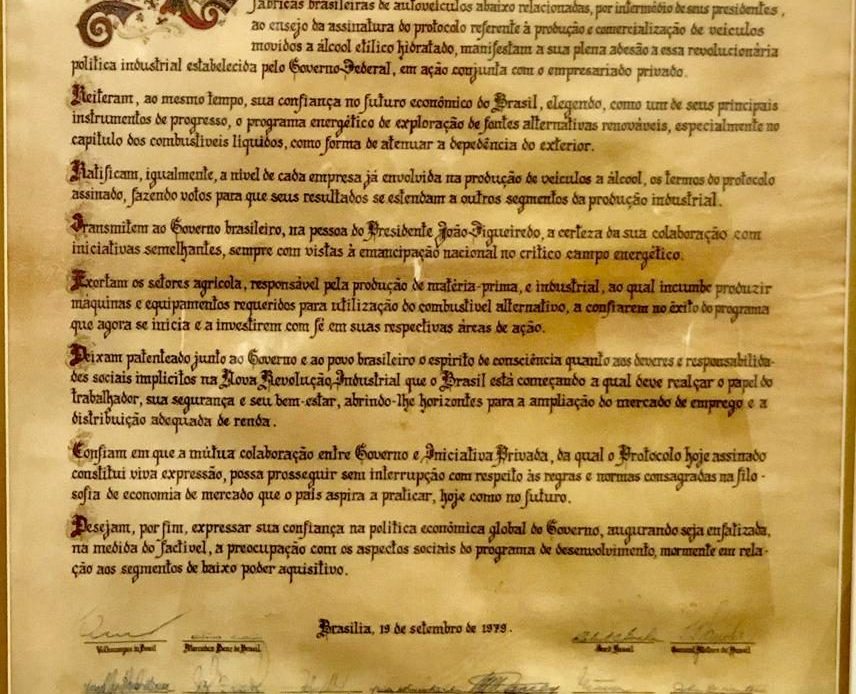 fábricas brasileiras de autoveículos abaixo relacionadas, por intermédio de seus presidentes,
ao ensejo da assinatura do protocolo referente à produção e comercialização de veículos
movidos a álcool etílico hidratado, manifestam a sua plena adesão a essa revolucionária
política industrial estabelecida pelo Governo Federal, em ação conjunta com o empresariado privado.
Reiteram, ao mesmo tempo, sua confiança no futuro econômico do Brasil, elegendo, como um de seus principais
instrumentos de progresso, o programa energético de exploração de fontes alternativas renováveis, especialmente no
capítulo dos combustíveis líquidos, como forma de atenuar a depedência do exterior.
Ratificam, igualmente, a nível de cada empresa já envolvida na produção de veículos a álcool, os termos do protocolo
assinado, fazendo votos para que seus resultados se estendam a outros segmentos da produção industrial.
Transmitem ao Governo brasileiro, na pessoa do Presidente João Figueiredo, a certeza da sua colaboração com
iniciativas semelhantes, sempre com vistas à emancipação nacional no crítico campo energético.
Exortam os setores agrícola, responsável pela produção de matéria-prima, e industrial, ao qual incumbe produzir
máquinas e equipamentos requeridos para utilização do combustível alternativo, a confiarem no êxito do programa
que agora se inicia e a investirem com fé em suas respectivas áreas de ação.
Deixam patenteado junto ao Governo e ao povo brasileiro o espírito de consciência quanto aos deveres e responsabilida-
des sociais implícitos na Nova Revolução Industrial que o Brasil está começando a qual deve realçar o papel do
trabalhador, sua segurança e seu bem-estar, abrindo-lhe horizontes para a ampliação do mercado de emprego e a
distribuição adequada de renda.
Confiam em que a mútua colaboração entre Governo e Iniciativa Privada, da qual o Protocolo hoje assinado
constitui viva expressão, possa prosseguir sem interrupção com respeito às regras e normas consagradas na filo-
sofia de economia de mercado que o país aspira a praticar, hoje como no futuro.
Desejam, por fim, expressar sua confiança na política econômica global do Governo, augurando seja enfatizada,
na medida do factível, a preocupação com os aspectos sociais do programa de desenvolvimento, mormente em rela-
ção aos segmentos de baixo poder aquisitivo.
Brasília, 19 de setembro de 1979.
Volkswagen do Brasil Mercedes Benz do Brasil Ford Brasil General Motors do Brasil